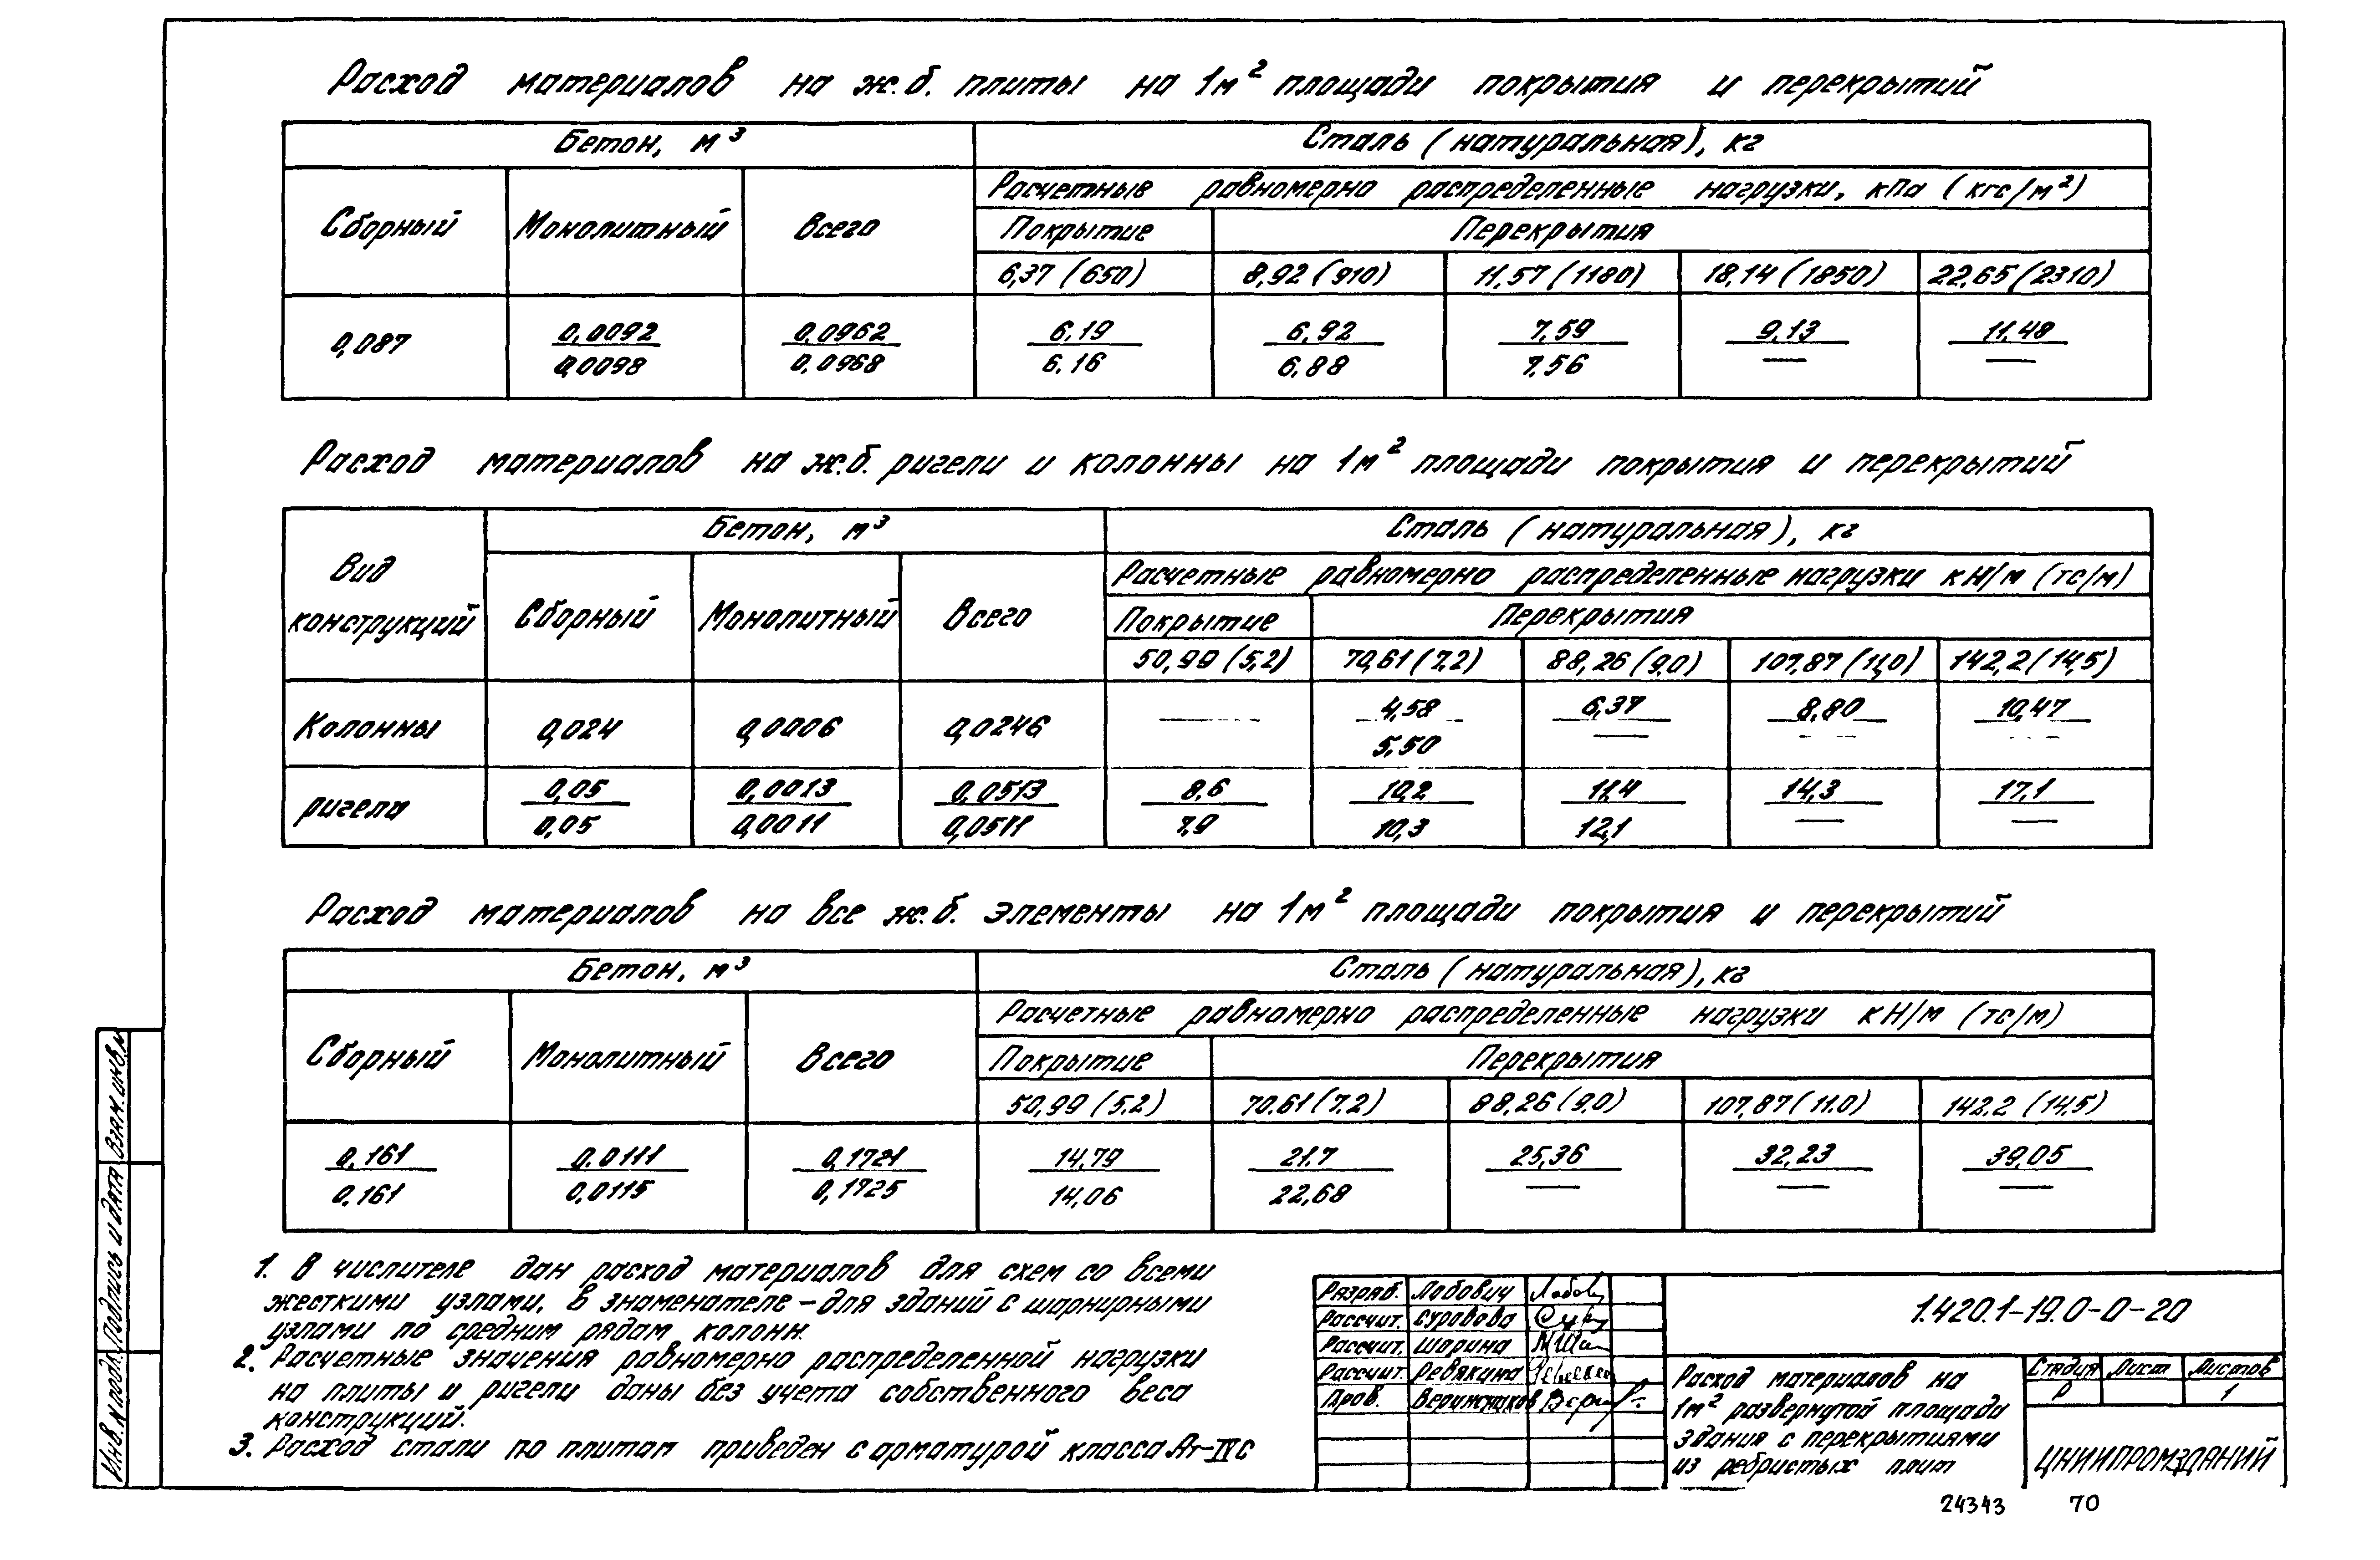 Расход материалов на ж.б. плиты на 1м² площади покрытия и перекрытий
Бетон, м³
Сталь (натуральная), кг
Сборный
Монолитный
Всего
Расчетные равномерно распределенные нагрузки, кПа (кгс/м²)
Покрытие
Перекрытия
6,37 (650)
8,92 (910)
11,57 (1180)
18,14 (1850)
22,65 (2310)
0,087
0,0092
0,0098
0,0962
0,0968
6,19
6,16
6,92
6,88
7,59
7,56
9,13
—
11,48
—
Расход материалов на ж.б. ригели и колонны на 1м² площади покрытия и перекрытий
Вид
конструкций
Бетон, м³
Сталь (натуральная), кг
Сборный
Монолитный
Всего
Расчетные равномерно распределенные нагрузки кН/м (тс/м)
Покрытие
Перекрытия
50,99 (5,2)
70,61 (7,2)
88,26 (9,0)
107,87 (11,0)
142,2 (14,5)
Колонны
0,024
0,0006
0,0246
—
4,58
5,50
6,37
—
8,80
—
10,47
—
ригели
0,05
0,05
0,0013
0,0011
0,0513
0,0511
8,6
7,9
10,2
10,3
11,4
12,1
14,3
—
17,1
—
Расход материалов на все ж.б. элементы на 1м² площади покрытия и перекрытий
Бетон, м³
Сталь (натуральная), кг
Сборный
Монолитный
Всего
Расчетные равномерно распределенные нагрузки кН/м (тс/м)
Покрытие
Перекрытия
50,99 (5,2)
70.61 (7,2)
88,26 (9,0)
107,87 (11.0)
142,2 (14,5)
0,161
0,161
0.0111
0,0115
0,1721
0,1725
14,79
14,06
21.7
22,68
25,36
—
32,23
—
39,05
—
1. В числителе дан расход материалов для схем со всеми
жесткими узлами, в знаменателе – для зданий с шарнирными
узлами по средним рядам колонн.
2. Расчетные значения равномерно распределенной нагрузки
на плиты и ригели даны без учета собственного веса
конструкций.
3. Расход стали по плитам приведен с арматурой класса Ат-IVс
Инв.№подл.
Подпись и дата
Взам.инв.№
Разраб. Лобович
Рассчит. Суровова
Рассчит. Шорина
Рассчит. Ревякина
Пров.
1.420.1-19.0-0-20
Расход материалов на
1м² развернутой площади
здания с перекрытиями
из ребристых плит
Стадия Лист Листов
Р 1
ЦНИИПРОМЗДАНИЙ
24343 70